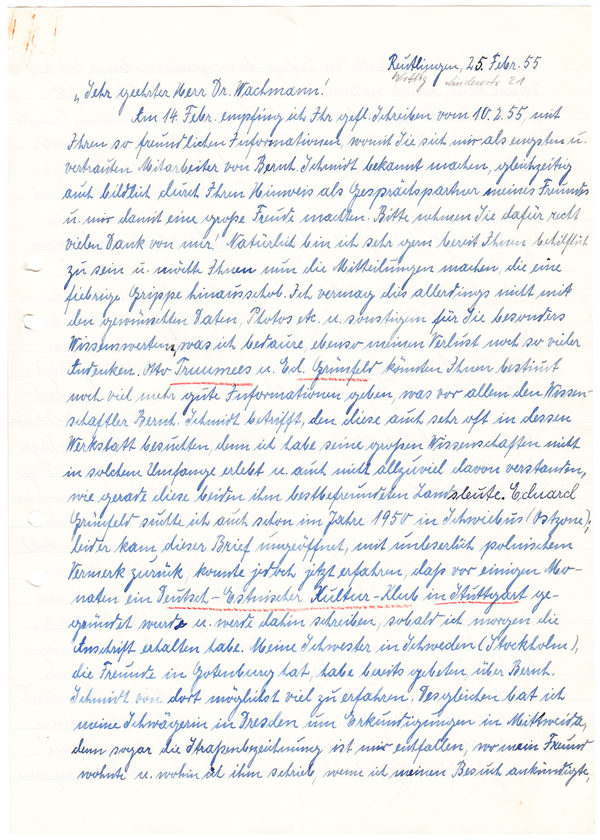 Reutlingen, 25. Febr. 55
Lindenstr. 21
„Sehr geehrter Herr Dr. Wachmann!
Am 14. Febr. empfing ich Ihr gefl. Schreiben vom 10.2.55, mit
Ihren so freundlichen Informationen, womit Sie sich mir als engsten u.
vertrauten Mitarbeiter von Bernh. Schmidt bekannt machen, gleichzeitig
auch bildlich durch Ihren Hinweis als Gesprächspartner meines Freundes
u. mir damit eine große Freude machten. Bitte nehmen Sie dafür recht
vielen Dank von mir! Natürlich bin ich sehr gern bereit Ihnen behilflich
zu sein u. möchte Ihnen nun die Mitteilungen machen, die eine
fiebrige Grippe hinausschob. Ich vermag dies allerdings nicht mit
den gewünschten Daten, Photos etc. u. sonstigen für Sie besonders
Wissenswerten, was ich bedaure, ebenso meinen Verlust noch so vieler
Andenken. Otto Treumees u. Ed. Grünfeld könnten Ihnen bestimt
noch viel mehr gute Informationen geben, was vor allem den Wissen-
schaftler Bernh. Schmidt betrifft, den diese auch sehr oft in dessen
Werkstatt besuchten, denn ich habe seine großen Wissenschaften nicht
in solchem Umfange erlebt u. auch nicht allzuviel davon verstanden,
wie gerade diese beiden ihm bestbefreundeten Landsleute. Eduard
Grünfeld suchte ich auch schon im Jahre 1950 in Schwiebus (Ostzone);
leider kam dieser Brief ungeöffnet, mit unleserlich polnischem
Vermerk zurück, konnte jedoch jetzt erfahren, daß vor einigen Mo-
naten ein Deutsch-Estnischer Kultur-Klub in Stuttgart ge-
gründet wurde u. werde dahin schreiben, sobald ich morgen die
Anschrift erhalten habe. Meine Schwester in Schweden (Stockholm),
die Freunde in Gotenburg hat, habe bereits gebeten, über Bernh.
Schmidt von dort möglichst viel zu erfahren. Desgleichen bat ich
meine Schwägerin in Dresden um Erkundigungen in Mittweida,
denn sogar die Straßenbezeichnung ist mir entfallen, wo mein Freund
wohnte u. wohin ich ihm schrieb, wenn ich meinen Besuch ankündigte,